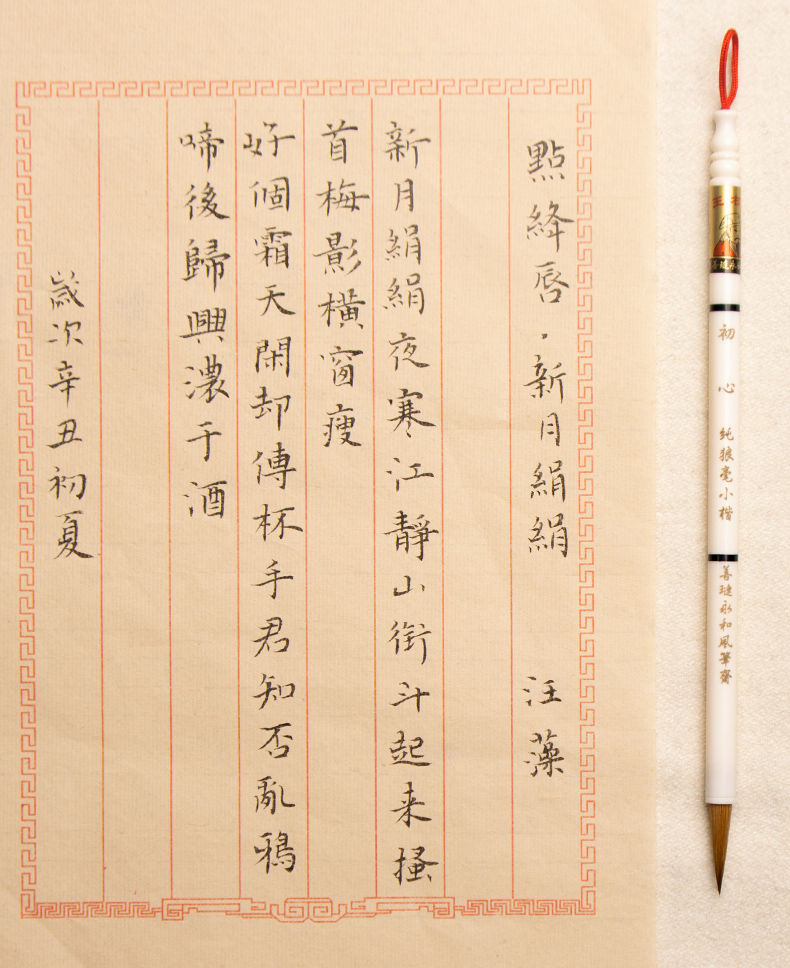 點絳唇·新月絹絹 汪藻
新月絹絹夜寒江靜山銜斗起来搔
首梅影橫窗瘦
好個霜天閑却傳杯手君知否亂鴉
啼後歸興濃于酒
歲次辛丑初夏
初心 純狼毫小楷
善琏永和風筆齋